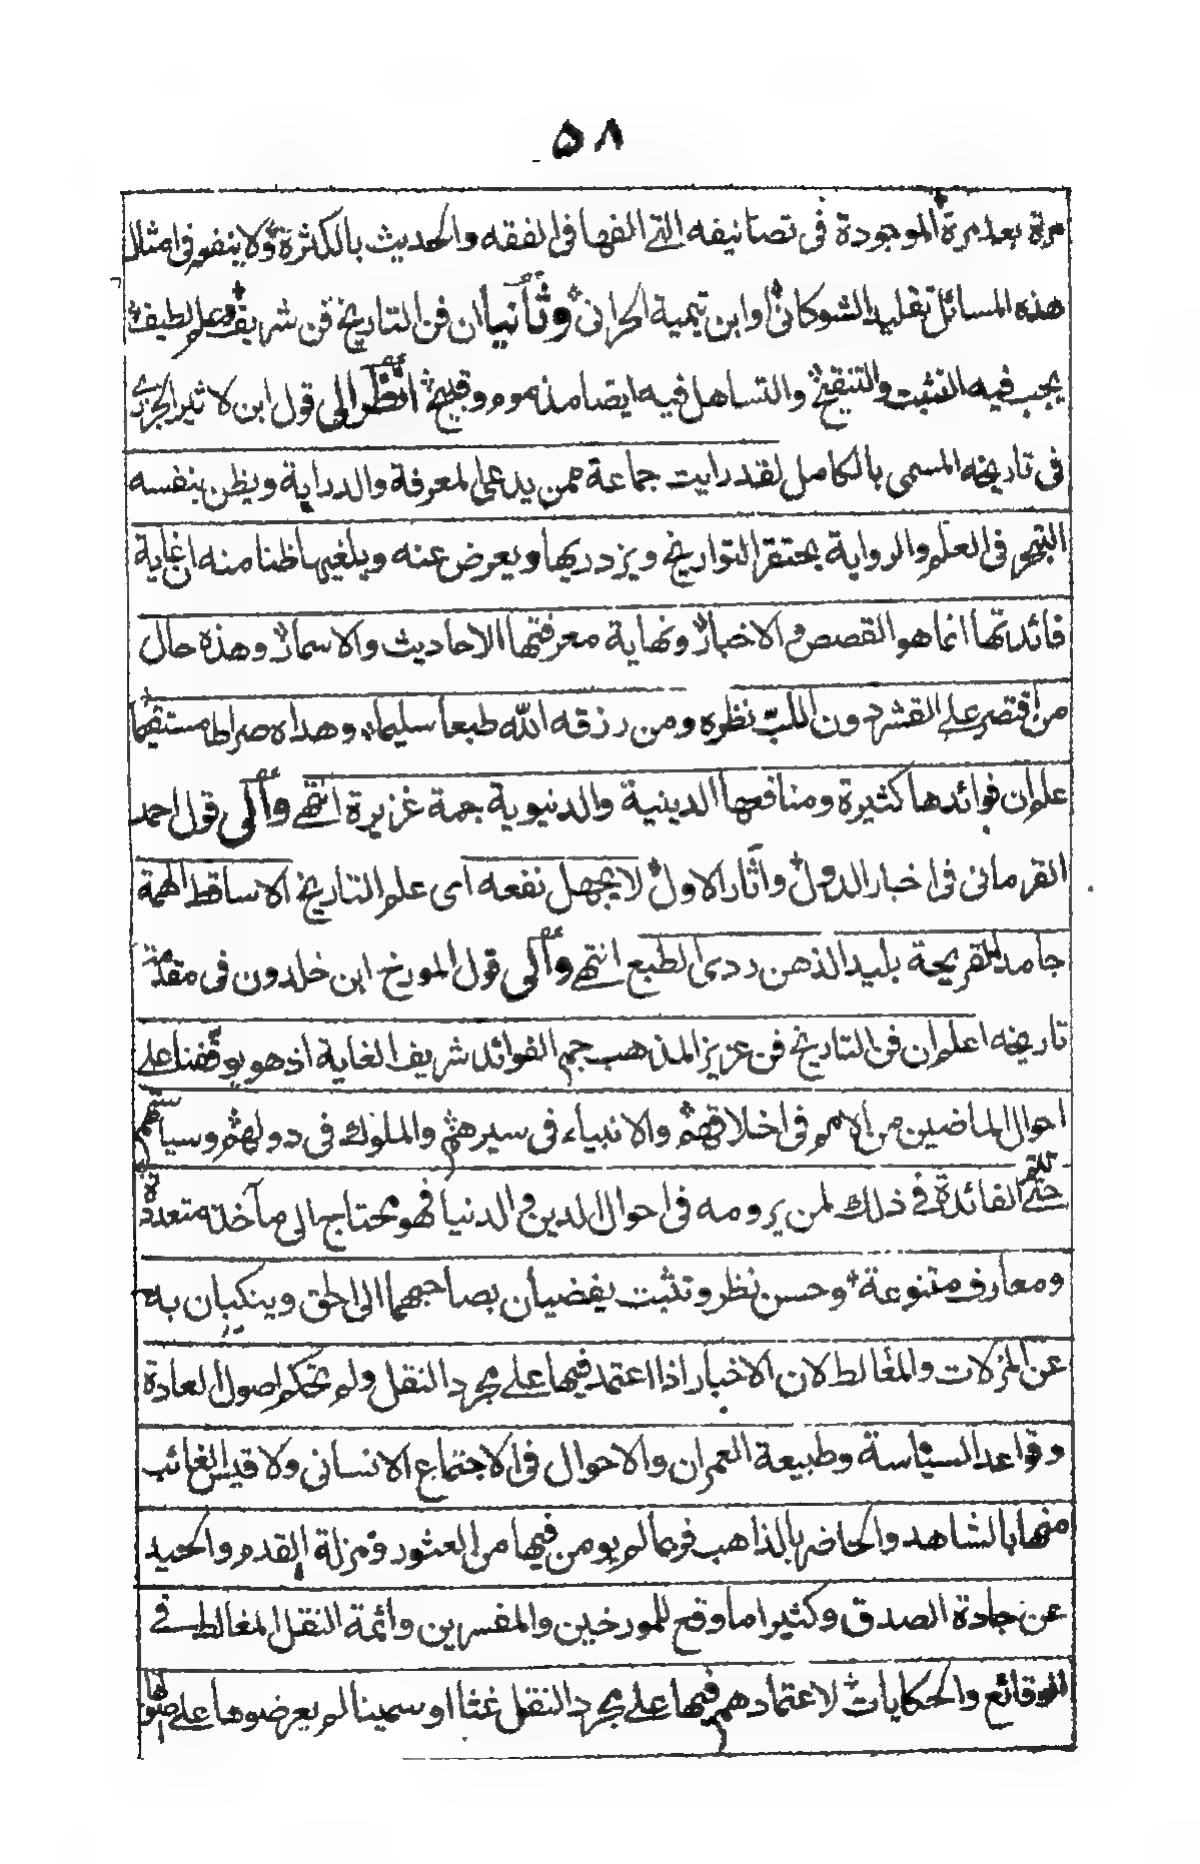 ۵۸
مرة بعد مرة الموجودة فى تصانيفه التے الفها فى الفقه والحديث بالكثرة ولا ينفو فى امثال
هذه المسائل تقليد الشوكانى او ابن تيمية الحرانى وثانيا ان فن التاريخ فن شريف وعلم لطيف
يجب فيه التثبت والتنقيح والتساهل فيه ايضا مذموم وقبيح انظر الى قول ابن الاثير الجزرى
فى تاريخه المسمى بالكامل لقد رايت جماعة ممن يدعى المعرفة والدراية ويظن بنفسه
التبحر فى العلم والرواية يحتقر التواريخ ويزدريها ويعرض عنه ويلغيها ظنا منه ان غاية
فائدتها انما هو القصص والاخبار ونهاية معرفتها الاحاديث والاسمار وهذه حال
من اقتصر على القشر دون اللب نظره ومن رزقه الله طبعا سليما وهداه صراطا مستقيما
علم ان فوائدها كثيرة ومنافعها الدينية والدنيوية جمة غزيرة انتهے والى قول احمد
القرمانى فى اخبار الدول واثار الاول لا يجهل نفعه اى علم التاريخ الا ساقط الهمة
جامد القريحة بليد الذهن ردى الطبع انتهے والى قول المورخ ابن خلدون فى مقدمة
تاريخه اعلم ان فن التاريخ فن عزيز المذهب جم الفوائد شريف الغاية اذ هو يوقفنا على
احوال الماضين من الامم فى اخلاقهم والانبياء فى سيرهم والملوك فى دولهم وسياستهم
حتے تتم الفائدة فے ذلك لمن يرومه فى احوال الدين والدنيا فهو محتاج الى مآخذ متعددة
ومعارف متنوعة وحسن نظر وتثبت يفضيان بصاحبهما الى الحق وينكبان به
عن المزلات والمغالط لان الاخبار اذا اعتمد فيها على مجرد النقل ولم تحكم اصول العادة
وقواعد السياسة وطبيعة العمران والاحوال فى الاجتماع الانسانى ولا قيس الغائب
منها بالشاهد والحاضر بالذاهب فربما لم يومن فيها من العثور ومزلة القدم والحيد
عن جادة الصدق وكثيرا ما وقع للمورخين والمفسرين وائمة النقل المغالط فے
الوقائع والحكايات لاعتمادهم فيها على مجرد النقل غثا او سمينا لم يعرضوها على اصولها